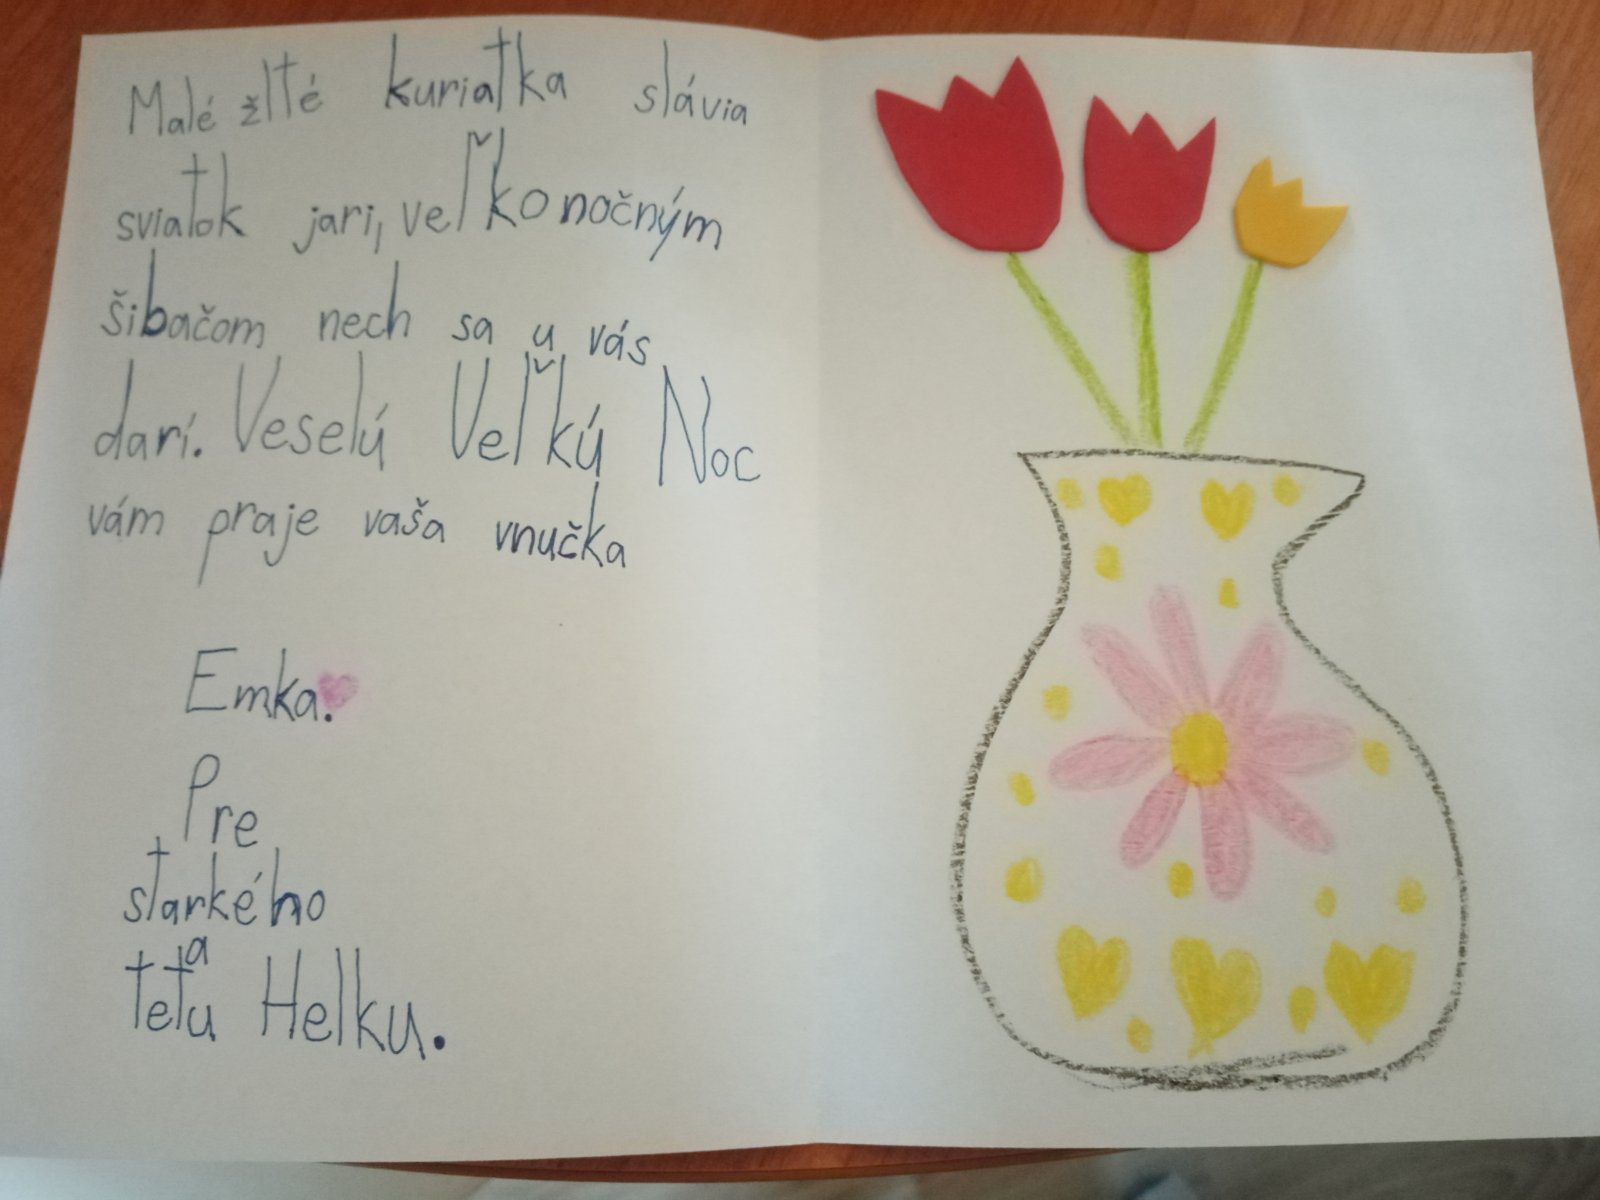 Malé žlté kuriatka slávia
sviatok jari, veľkonočným
šibačom nech sa u vás
darí. Veselú Veľkú Noc
vám praje vaša vnučka
Emka.
Pre
starkého
a
tetu Helku.